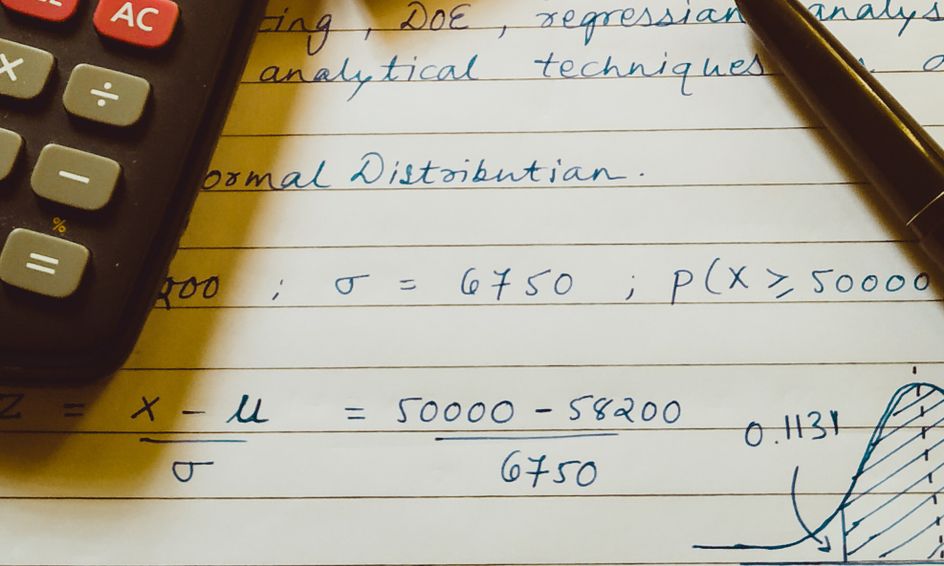 AC
ing, DOE, regressian analys
× analytical techniques
÷
ormal Distributian.
−
%
=
200 ; σ = 6750 ; P(X ⩾ 50000
Z = x − μ = 50000 − 58200
σ 6750
0.1131